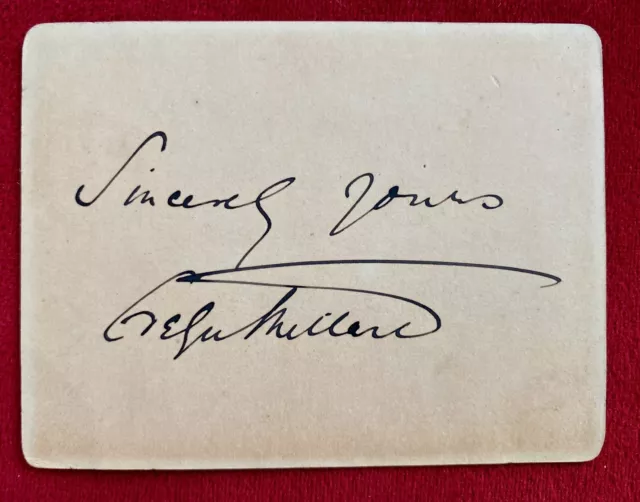 Sincerely Yours
Evelyn Millard